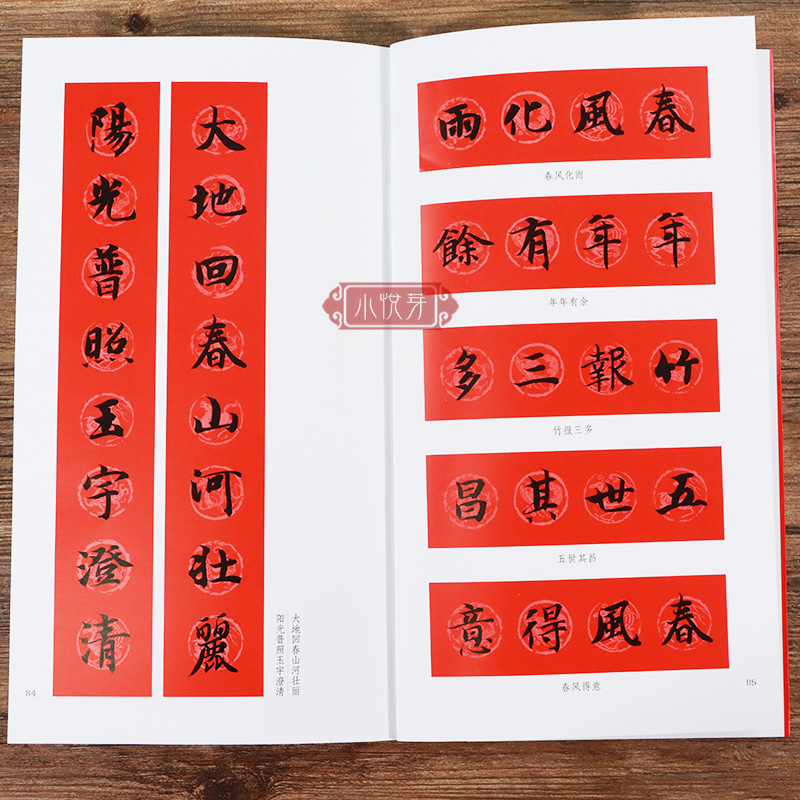 大地回春山河壯麗
陽光普照玉宇澄清
大地回春山河壮丽
阳光普照玉宇澄清
84
小悦芽
春風化雨
春风化雨
年年有餘
年年有余
竹報三多
竹报三多
五世其昌
五世其昌
春風得意
春风得意
85